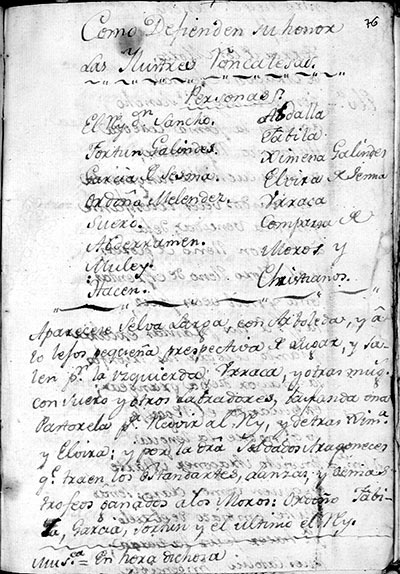 76
Como Defienden su honor
Las Ylustres Roncalesas.
Personas
El Rey dn Sancho.
Fortun Galindes.
Garcia
Ordoño Melendez.
Suero.
Abderramen.
Muley.
Hacen.
Abdalla
Fabila.
Ximena Galindes
Elvira
Urraca
Comparsa
Moros y
Christianos.
Aparecese Selva Larga, con Arboleda, y â
lo lejos pequeña prespectiva Lugar, y sa
len pr. la izquierda Urraca, y otras mug.
con Suero y otros Labradores, baylando una
Pastorela pa. Recivir al Rey, y detras Xim.a
y Elvira; y por la dra. Soldados Aragoneces
qe. traen los Estandartes, Lanzas, y demas
trofeos ganados a los Moros: Ordoño Fabi
la, Garcia, Fortun y el ultimo el Rey.
mus.ca = En hora dichosa